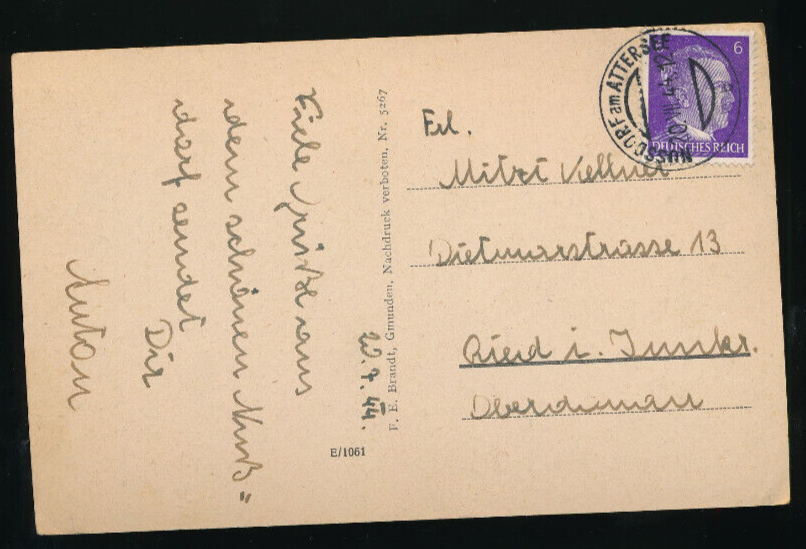 20. 7. 44.
Viele Grüße aus
dem schönen Nuß=
dorf sendet
Dir
Anton
F. E. Brandt, Gmunden, Nachdruck verboten, Nr. 5267
E/1061
6
DEUTSCHES REICH
NUSSDORF am ATTERSEE
Frl.
Mitzi Kellner
Dietmarstrasse 13
Ried i. Innkr.
Oberdonau